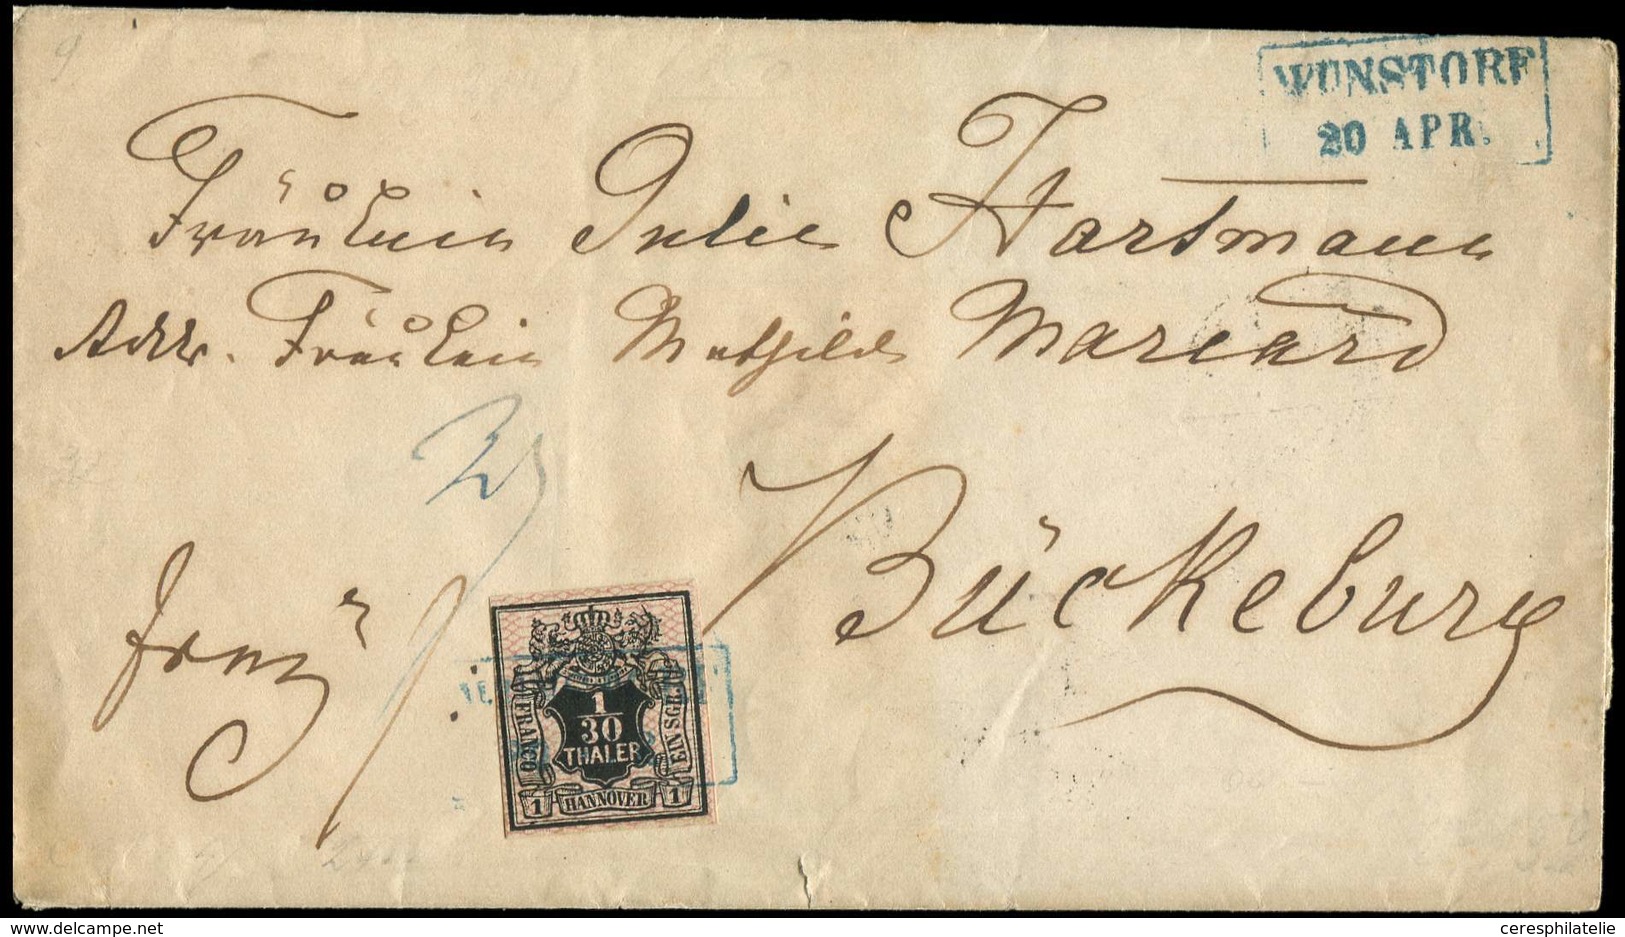 WUNSTORF
20 APR.
Fräulein Julie Hartmann
Adr. Fräulein Mathilde Marcard
Bückeburg
franco
FRANCO
1
30
THALER
EIN SGR.
1 HANNOVER 1
www.delcampe.net
ceresphilatelie